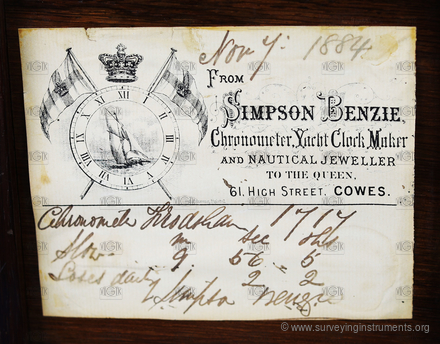 Nov 7. 1884
FROM
SIMPSON BENZIE,
Chronometer, Yacht Clock Maker
AND NAUTICAL JEWELLER
TO THE QUEEN,
61, HIGH STREET, COWES.
XII I II III IIII V VI VII VIII IX X XI
Chronometer 1717
Slow m sec
9 56 5
Loses daily 2 2
Simpson Benzie
© www.surveyinginstruments.org